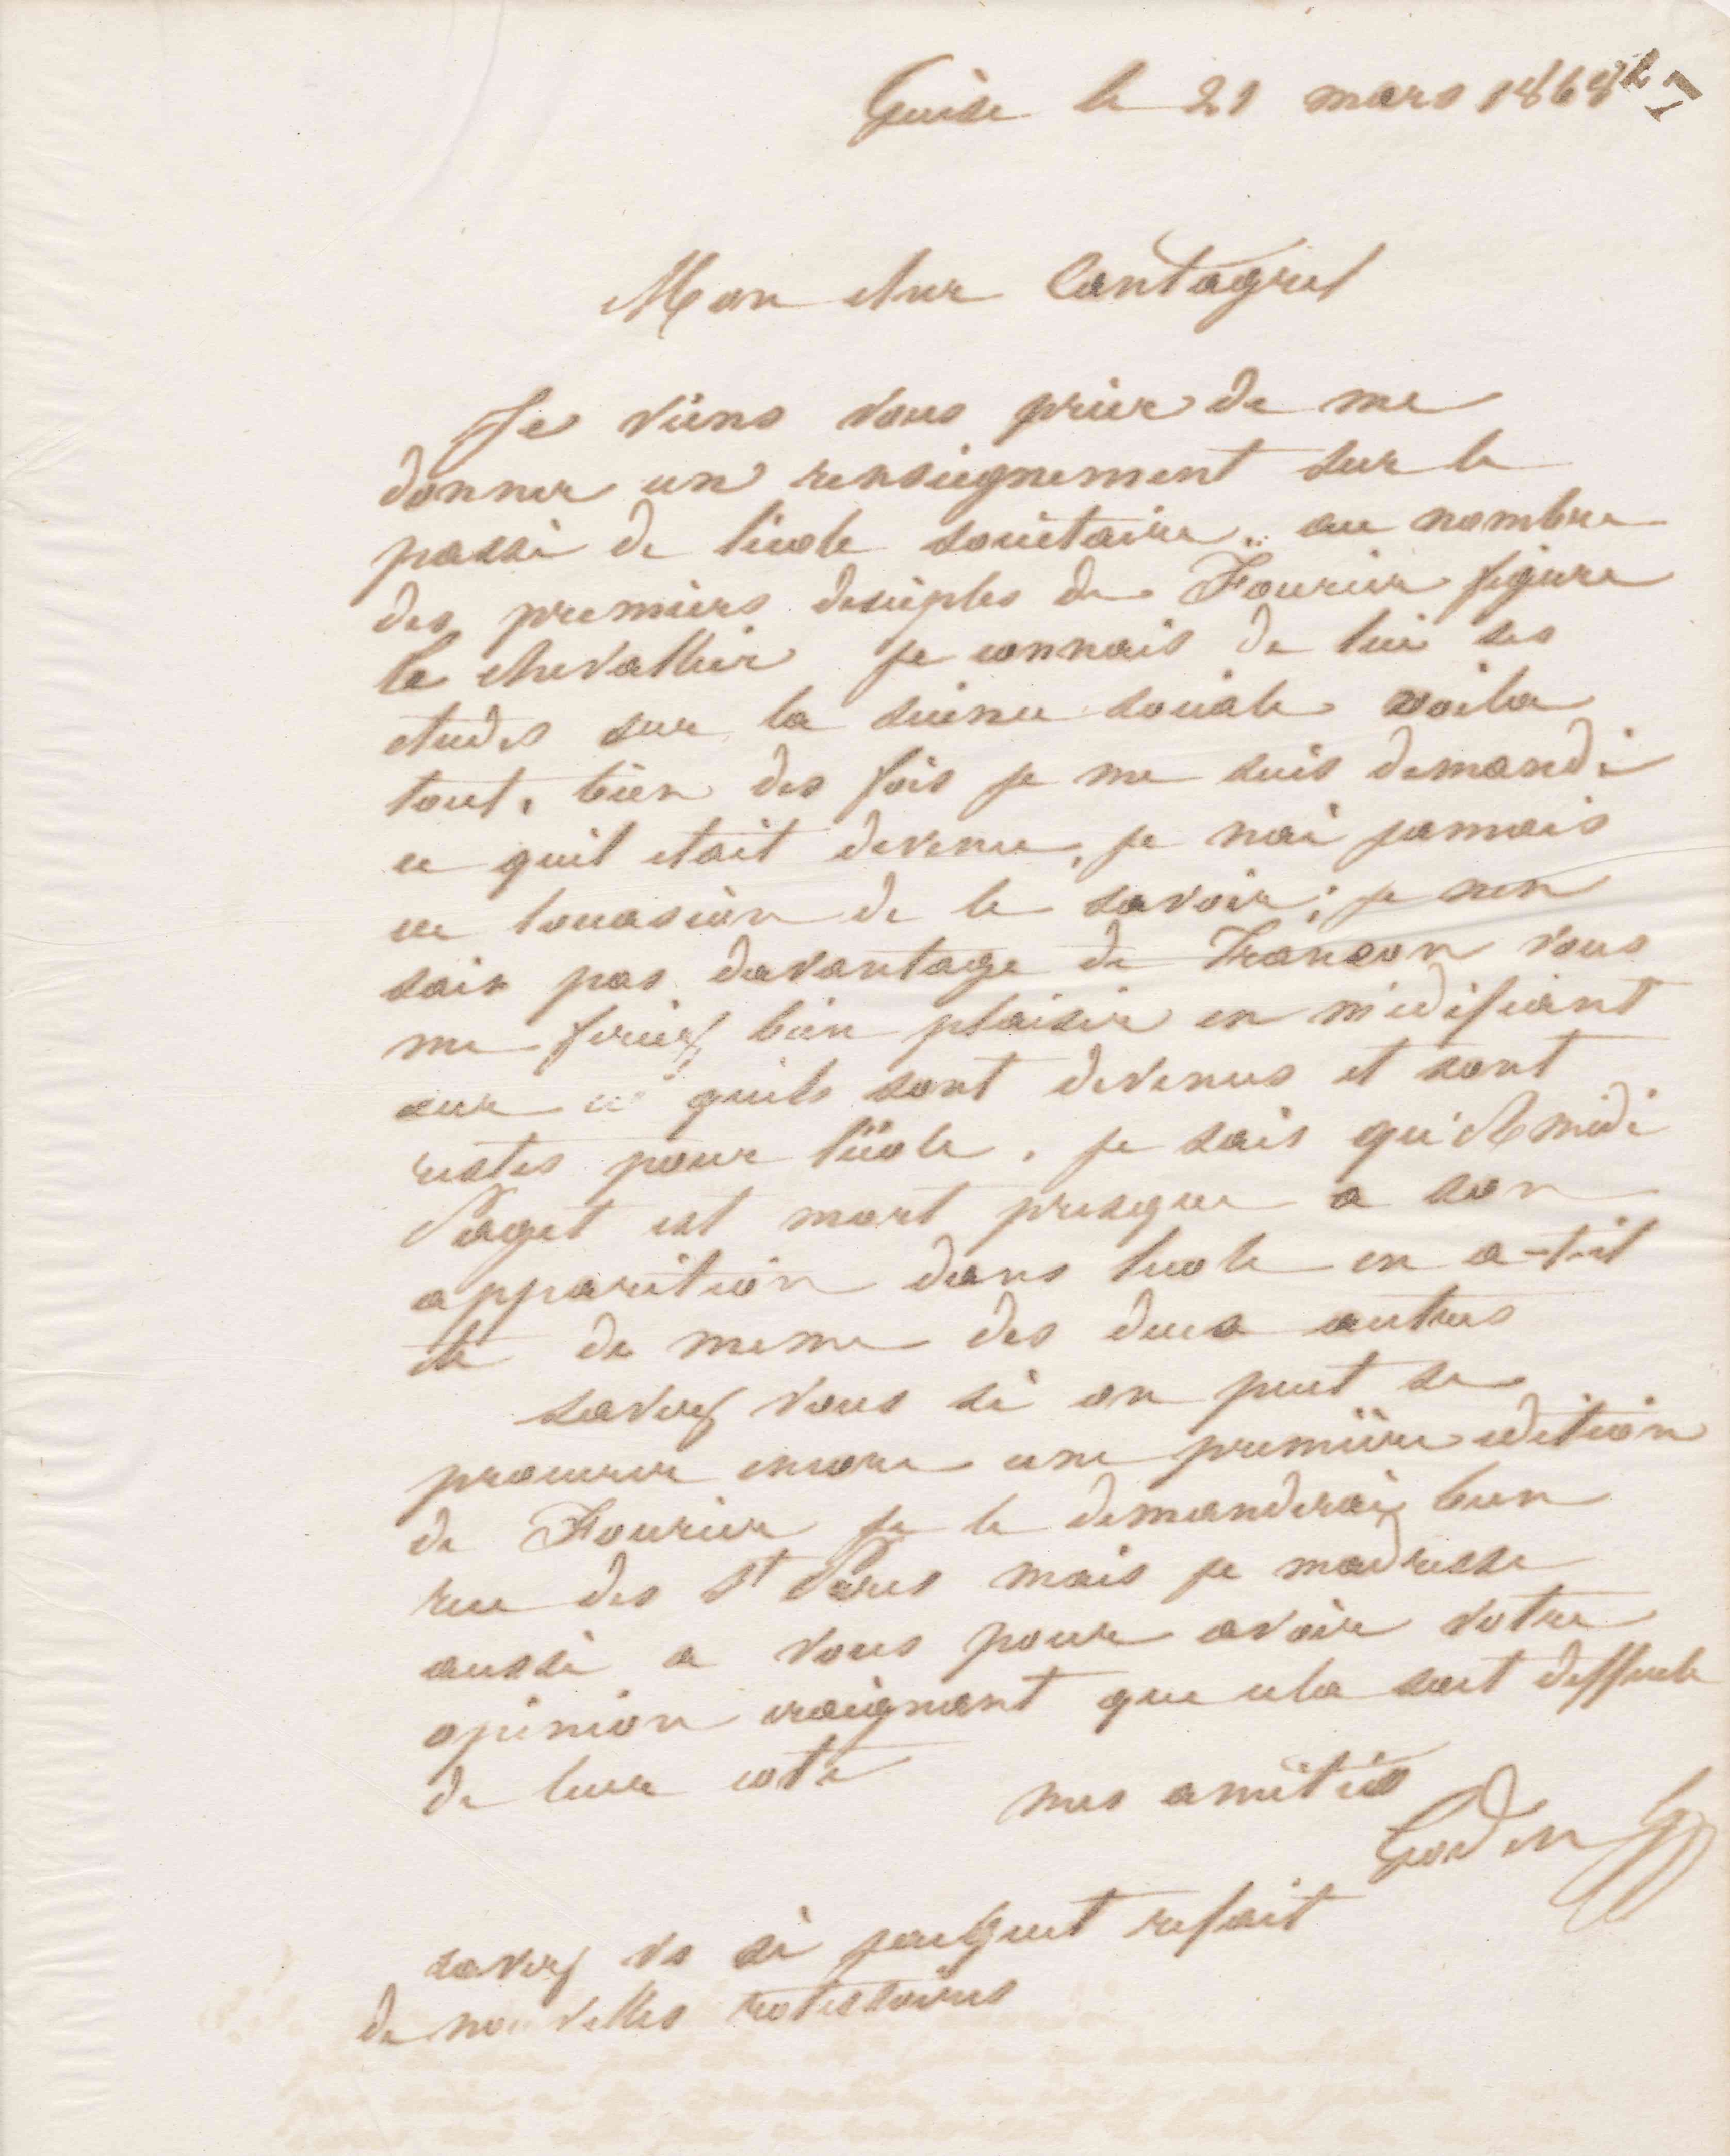 Guise le 21 mars 1868
Mon cher Cantagrel
Je viens vous prier de me
donner un renseignement sur le
passé de l'école sociétaire. au nombre
des premiers desciples de Fourier figure
le chevallier je connais de lui ses
etudes sur la science sociale voila
tout. bien des fois je me suis demandé
ce quil etait devenu, je nai jamais
eu loccasion de le savoir; je nen
sais pas davantage de Trancon vous
me feriez bien plaisir en m'édifiant
sur ce quils sont devenus et sont
restes pour l'école. je sais qu'Amédé
Paget est mort presque a son
apparition dans lecole en a-t-il
eté de meme des deux autres
savez vous si on peut se
procurer encore une première edition
de Fourier je le demanderai bien
rue des St Peres mais je madresse
aussi a vous pour avoir votre
opinion craignant que cela soit difficile
de leur coté
mes amitiés
Godin
savez vs si refait
de nouvelles rotissoires